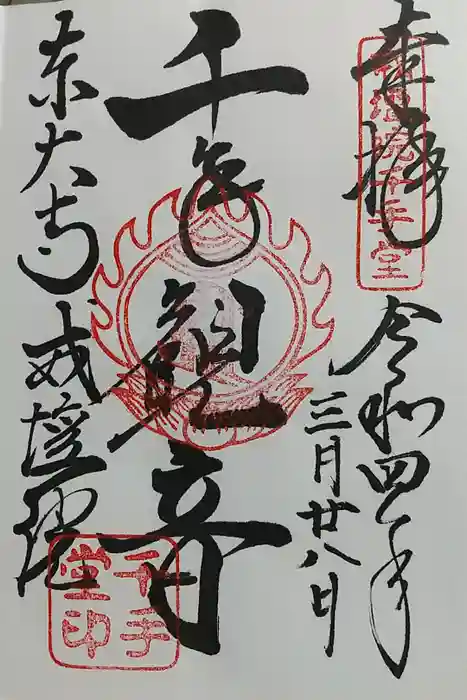 奉拝
戒壇院千手堂
令和四年
三月廿八日
千手観音
東大寺戒壇院
千手堂印